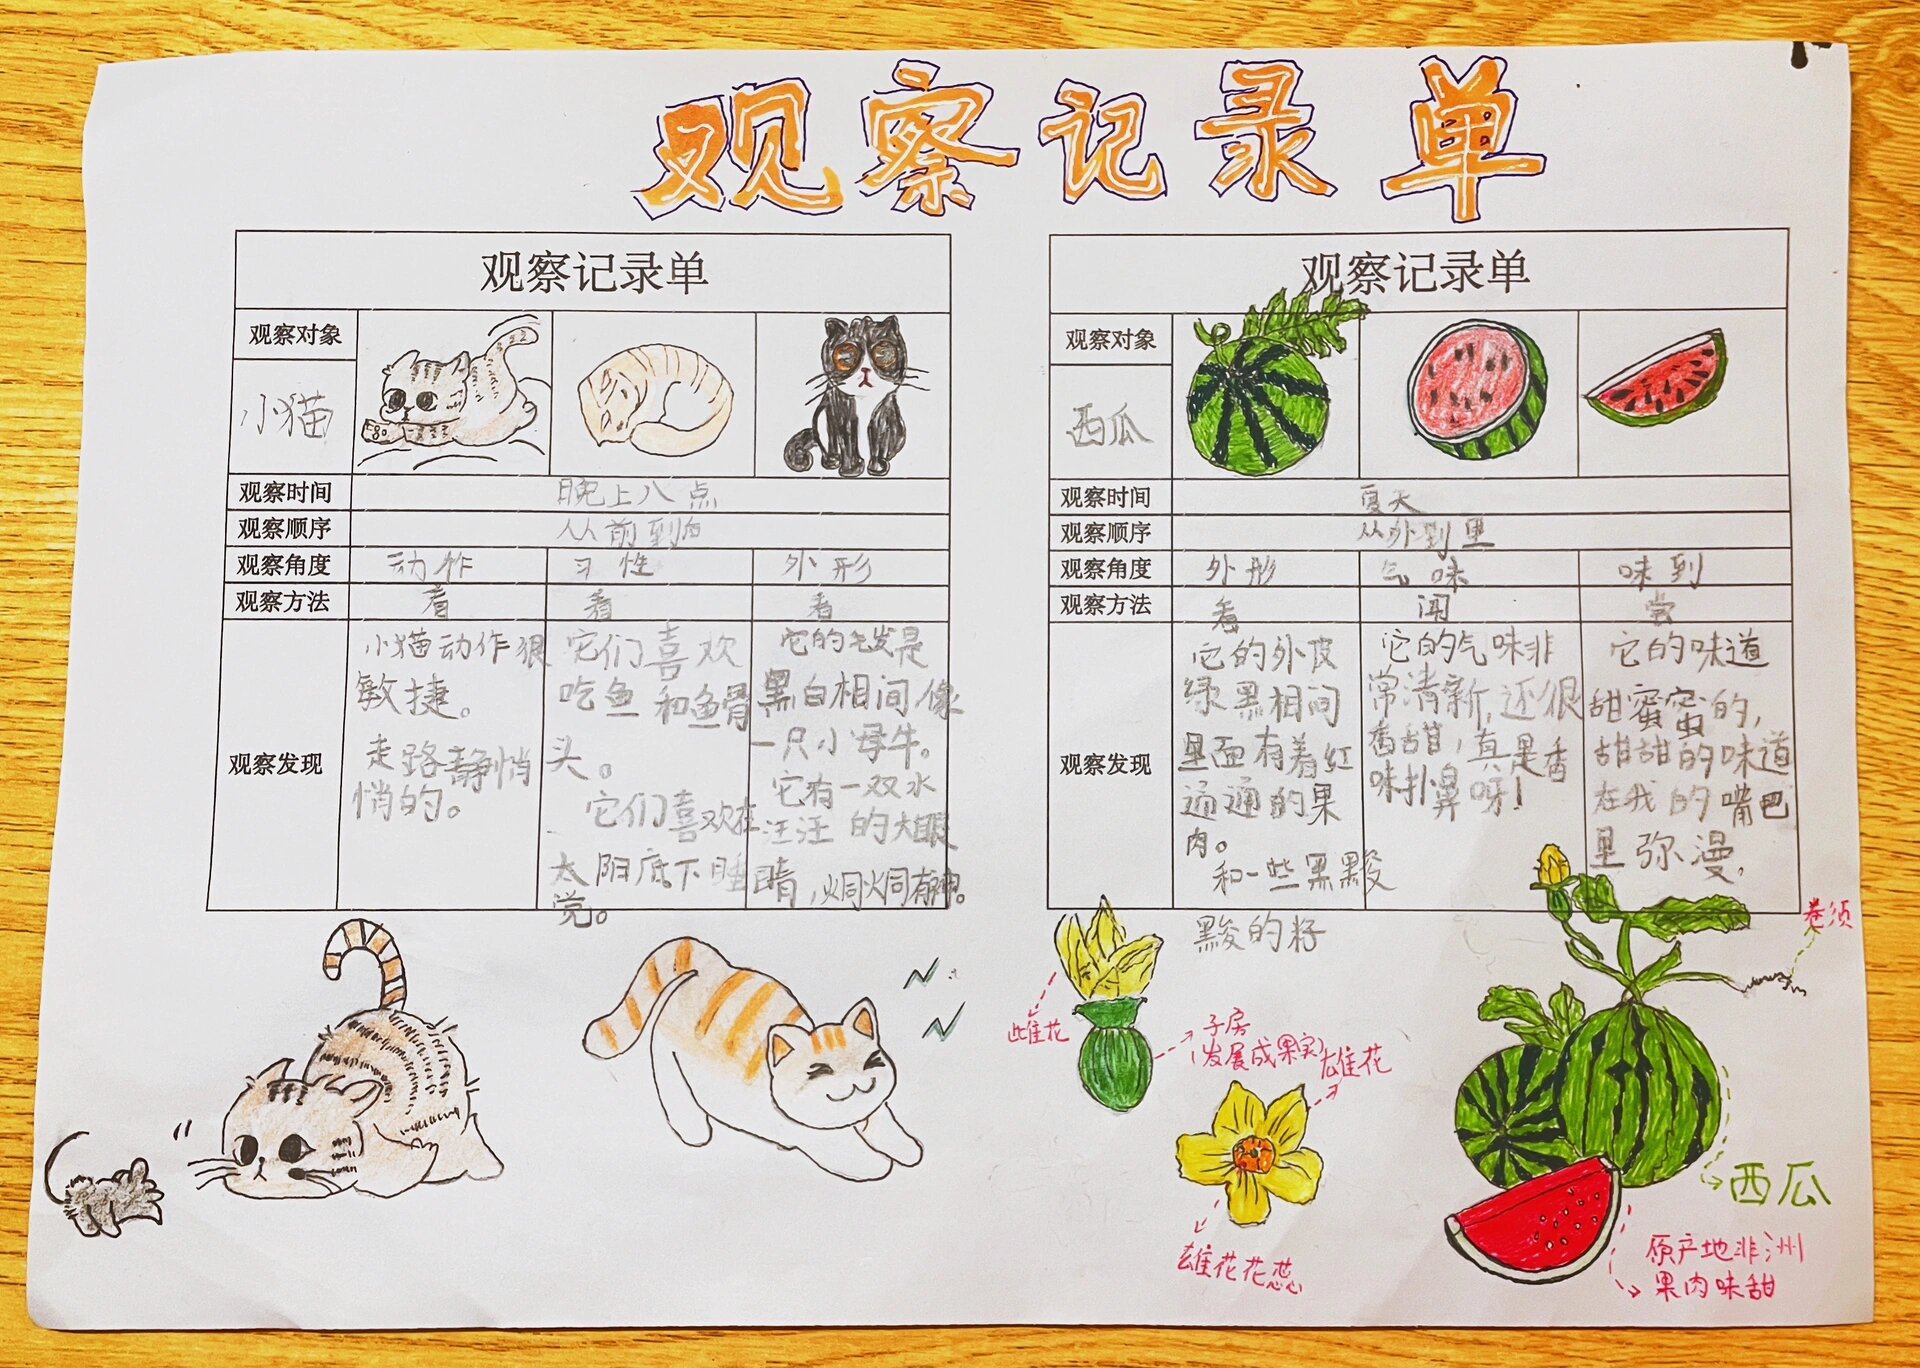 观察记录单
观察记录单
观察对象
小猫
观察时间
晚上八点
观察顺序
从前到后
观察角度
动作
习性
外形
观察方法
看
看
看
观察发现
小猫动作很
敏捷。
走路静悄
悄的。
它们喜欢
吃鱼和鱼骨
头。
它们喜欢在
太阳底下睡
觉。
它的毛发是
黑白相间像
一只小母牛。
它有一双水
汪汪的大眼
睛，炯炯有神。
观察记录单
观察对象
西瓜
观察时间
夏天
观察顺序
从外到里
观察角度
外形
气味
味到
观察方法
看
闻
尝
观察发现
它的外皮
绿黑相间
里面有着红
通通的果
肉。
和一些黑黢
黢的籽
它的气味非
常清新，还很
香甜，真是香
味扑鼻呀！
它的味道
甜蜜蜜的，
甜甜的味道
在我的嘴巴
里弥漫，
雌花
子房
（发展成果实）
雄花
雄花花蕊
卷须
西瓜
原产地非洲
果肉味甜